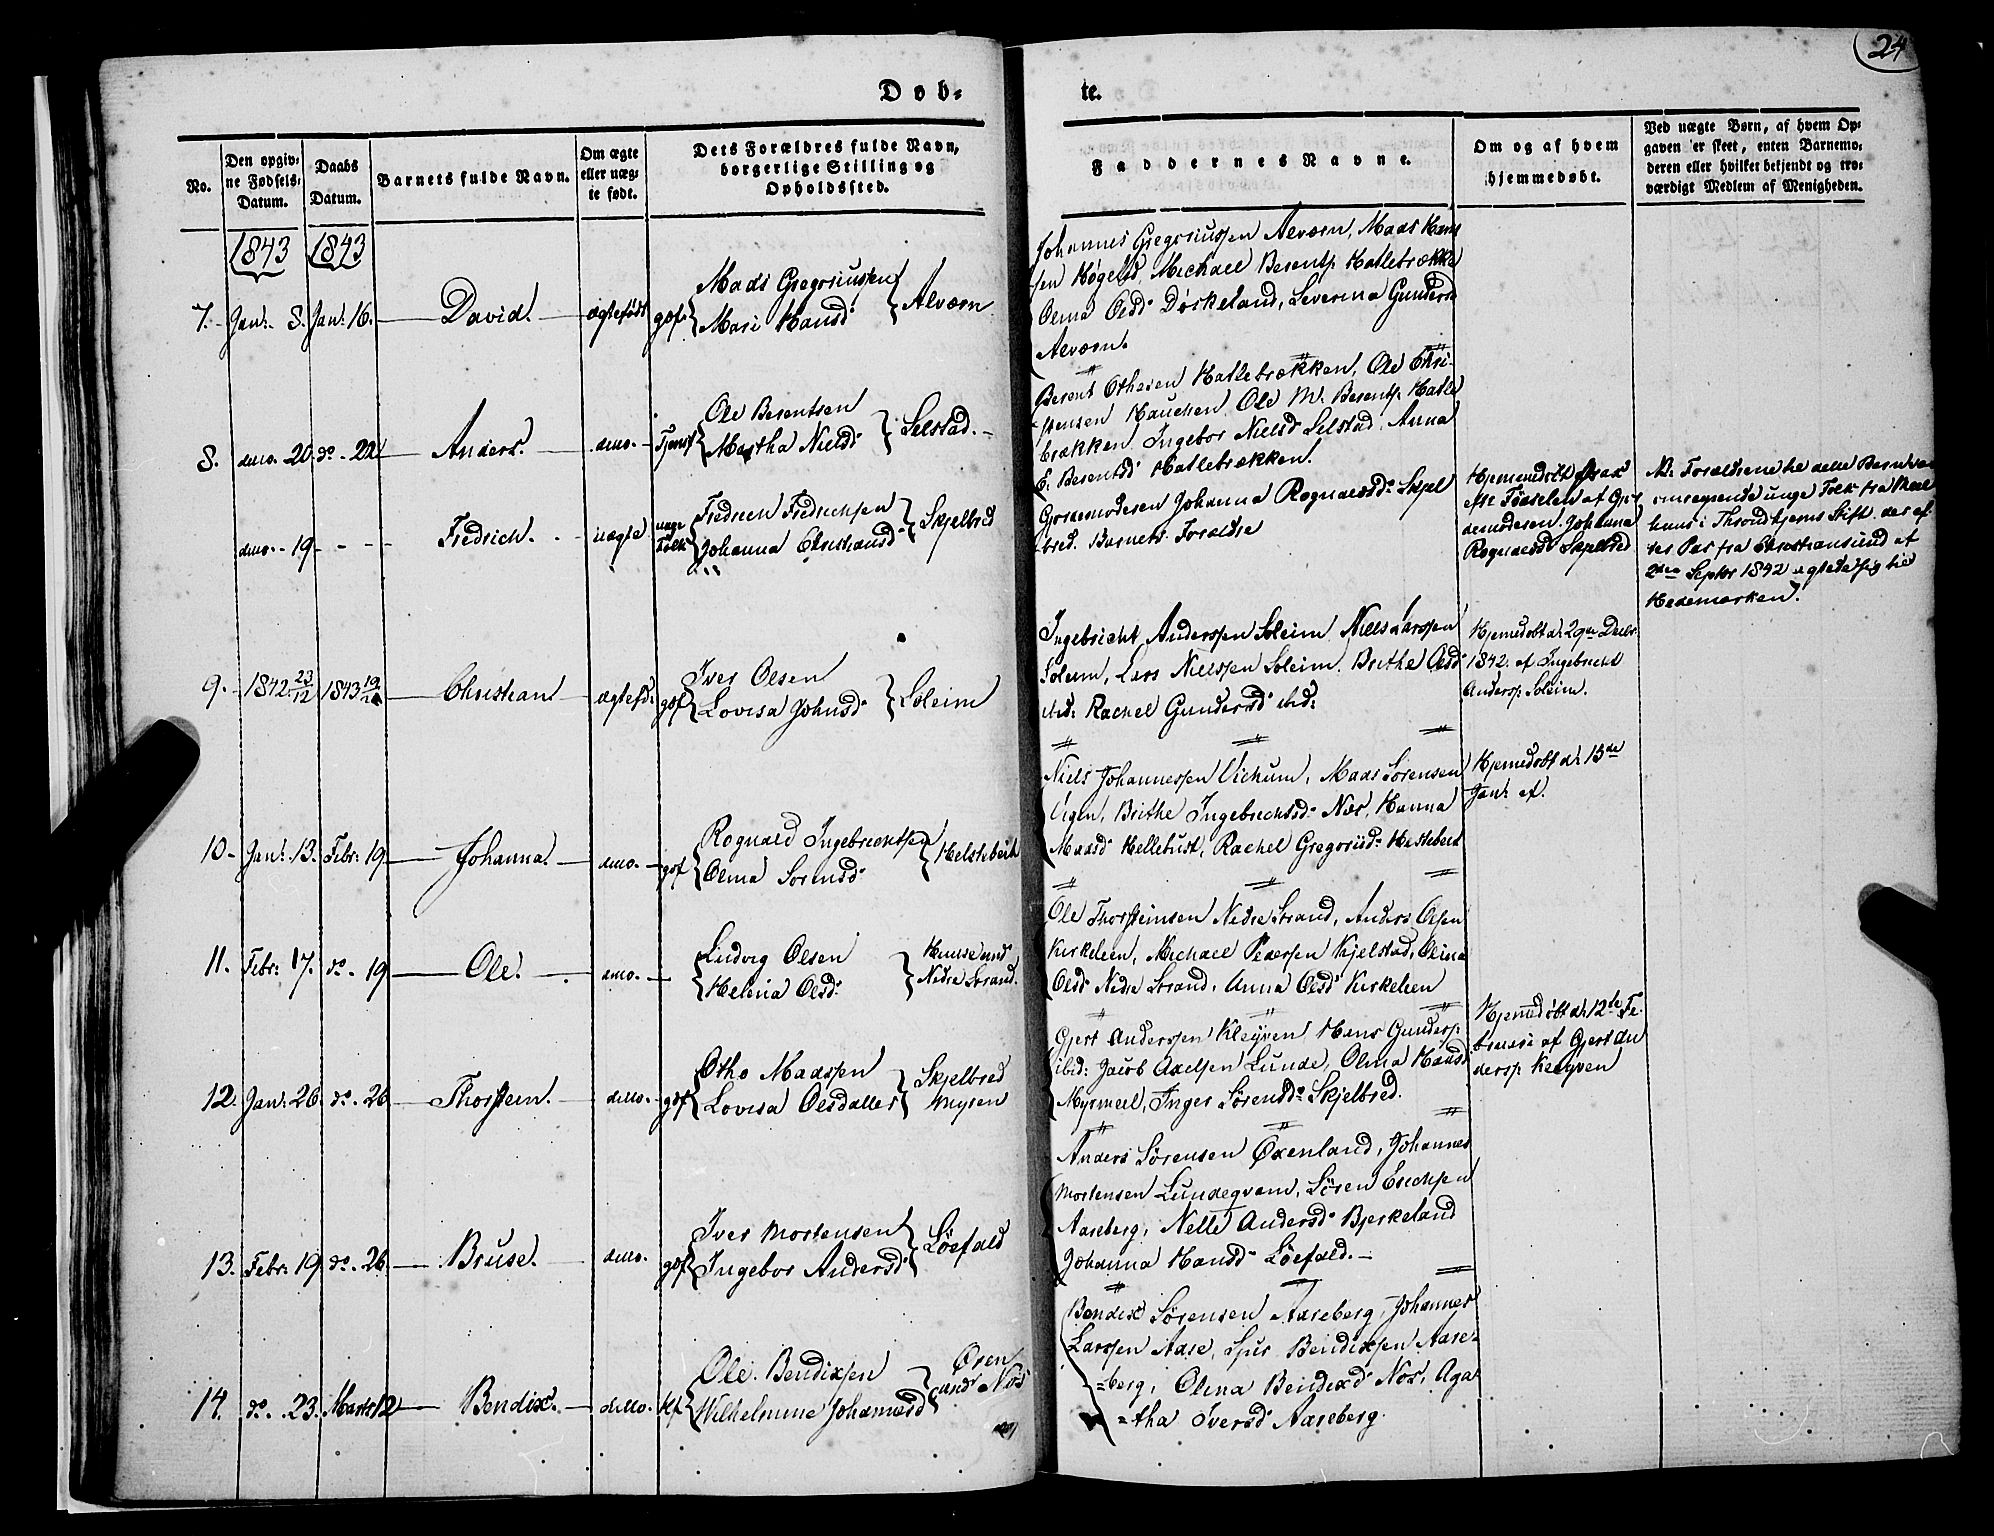 24
Døb-
te.
No.
Den opgiv-
ne Fødsels-
Datum.
Daabs
Datum.
Barnets fulde Navn.
Om ægte
eller uæg-
te født.
Dets Forældres fulde Navn,
borgerlige Stilling og
Opholdssted.
Faddernes Navne.
Om og af hvem
hjemmedøbt.
Ved uægte Børn, af hvem Op-
gaven er skeet, enten Barnemo-
deren eller hvilket bekjendt og tro-
værdigt Medlem af Menigheden.
1843 1843
7. Jan: 8. Jan: 16. David. ægtefødt gdf:
Mads Gregoriussen
Mari Hansd:
Alværn
Johannes Gregoriussen Alværn, Mads Han-
sen Høgelid, Michael Berents: Hatlebrække
Olma Olsd: Dørkeland, Severina Gunders
Alværn.
8. dito. 20. do. 22 Anders. dito.
Ole Berentsen
Martha Nielsd:
Selstad.
Berent Othesen Hatlebrækken, Ole Chri-
stensen Hauchen, Ole M. Berents: Hatle
brækken, Ingebor Nielsd: Selstad, Anna
E. Berentsd: Hatlebrækken.
dito. 19 Fredrich. uægte unge Folk
Fredrich Fredrichsen
Johanna Christiansd:
Skjelbred
Gordemodesen Johanna Rognaldsd: Skjel
bred. Barnets Forældre
Hjemmedøbt strax
efter Fødselen af Gjor
demodesen Johanna
Rognaldsd: Skjelbred
N: Forældrene til dette Barn var
omreisende unge Folk fra
huus i Throndhjems Stift der ef-
ter Pas fra Christiansund af
2den Septbr 1842 agtede sig til
Hedemarken.
9. 1842 23/12 1843 19/ Christian ægtefd: gdf
Iver Olsen
Lovisa Johnsd:
Soleim
Ingebricht Anderssen Soleim, Niels Larssen
Soleim, Lars Nielssen Soleim, Brithe Olsd:
ibid: Rachel Gundersd: ibid:
Hjemedøbt d: 29de Decbr
1842. af Ingebricht
Andersp Soleim.
10. Jan: 13. Febr: 19 Johanna. dito. gdf
Rognald Ingebrichtsen
Olma Sørensd:
Helstebert
Niels Johannessen Vichum, Mads Sørensen
Vigen, Brithe Ingebrichtsd: Nær, Hanna
Madsd: Hellebust, Rachel Gregoriid: Helstebert
Hjemedøbt d: 13de
Jan: af.
11. Febr: 17. do. 19 Ole. dito.
Ludvig Olsen
Helena Olsd:
Huusemd
Nedre Strand.
Ole Thorsteinsen Nedre Strand, Anders Olsen
Kirkelien, Michael Pedersen Kjelstad, Olina
Olsd: Nedre Strand, Anna Olsd: Kirkelien
12. Jan: 26. do. 26 Thorstein. ditto. gdf
Otho Madssen
Lovisa Olsdatter
Skjelbred
Myren
Gjert Anderssen Kleyven, Hans Gundersp
ibid: Jacob Axelsen Lunde, Olma Hansd:
Myrmeel, Inger Sørensd: Skjelbred.
Hjemedøbt d: 12te Fe-
bruari af Gjert An
dersp: Kleyven
13. Febr: 19 do. 26. Bruse. dito. gdf
Iver Mortensen
Ingebor Andersd:
Løefald
Anders Sørensen Øxenland, Johannes
Mortensen Lundeqvam, Søren Erichsen
Aaseberg, Nelle Andersd: Bjerkeland
Johanna Hansd: Løefald.
14. do. 23. Marts 12 Bendix. ditto. Kf
Ole. Bendixsen
Wilhelmine Johannesd
Øren
under Nos
Bendix Sørensen Aaseberg, Johannes
Larssen Aase, Sjur Bendixsen Aase-
=berg, Olina Bendixd: Nos, Aga-
=tha Iversd: Aaseberg.